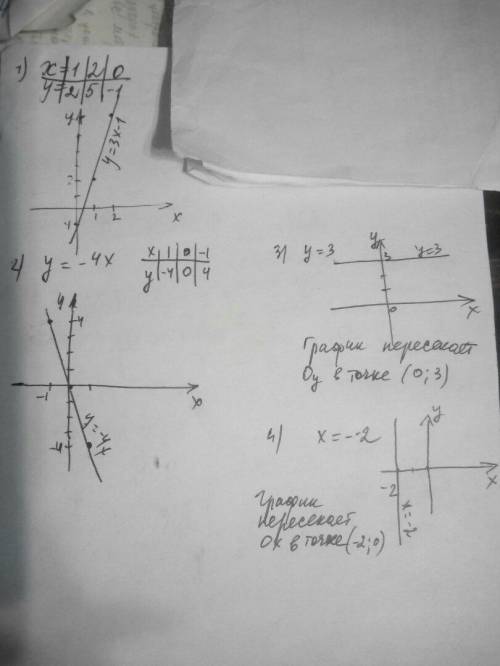 1) x = 1 | 2 | 0
y = 2 | 5 | -1
y
y=3x-1
2
1 2
x
-1
2) y = -4x
x | 1 | 0 | -1
y | -4 | 0 | 4
y
4
-1
x
-4
y=-4x
3) y=3
y
3
y=3
0
x
График пересекает
Оу в точке (0; 3)
4) x = -2
y
-2
x
x=-2
График
пересекает
Ох в точке (-2; 0)